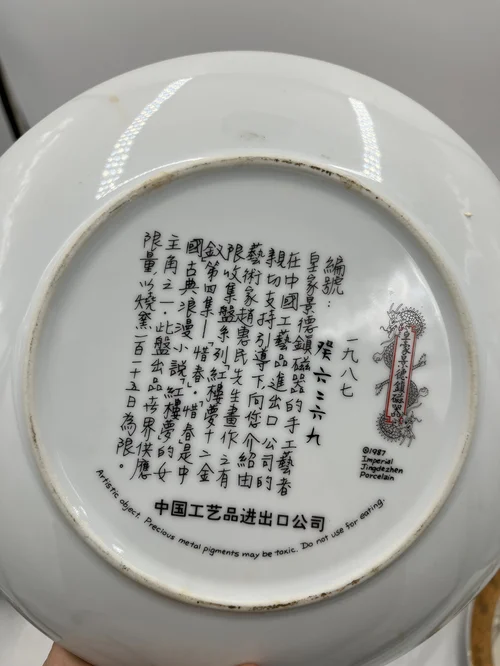 編號：
一九八七
癸六二六九
皇家景德鎮磁器的手工藝者
在中國工藝品進出口公司的
親切支持引導下向您介紹由
藝術家趙惠民先生畫作之有
限收集盤系列「紅樓夢十二金
釵」第四集—惜春。惜春是中
國古典浪漫小說「紅樓夢」的女
主角之一，此盤出品世界供應
限量，以燒窯一百一十五日為限。
皇家景德鎮磁器
©1987
Imperial
Jingdezhen
Porcelain
中国工艺品进出口公司
Artistic object. Precious metal pigments may be toxic. Do not use for eating.